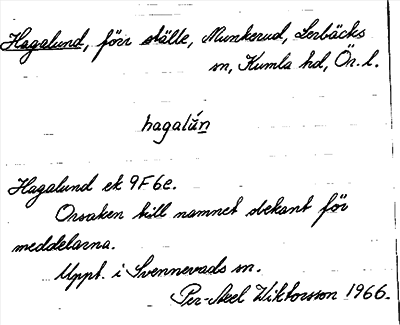 Hagalund, förr ställe, Munkerud, Lerbäcks
sn, Kumla hd, Ör. l.
hagalún
Hagalund ek 9F6e.
Orsaken till namnet okänt för
meddelarna.
Uppt. i Svennevads sn.
Per-Axel Wiktorsson 1966.